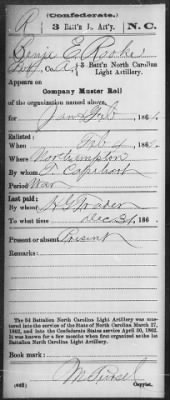 (Confederate.)
R 3 Batt'n L. Art'y. N.C.
Benj. E. Rooker
Co. A, 3 Batt'n North Carolina Light Artillery.
Appears on
Company Muster Roll
of the organization named above,
for Jan & Feb, 186
Enlisted:
When Feb 4, 186
Where Northampton
By whom T. Capehart
Period War
Last paid:
By whom
To what time Dec 31, 186
Present or absent Present
Remarks:
The 3d Battalion North Carolina Light Artillery was mustered into the service of the State of North Carolina March 17, 1862, and into the Confederate States service April 30, 1862. It was known for a few months when first organized as the 1st Battalion North Carolina Light Artillery.
Book mark:
(642) Copyist.